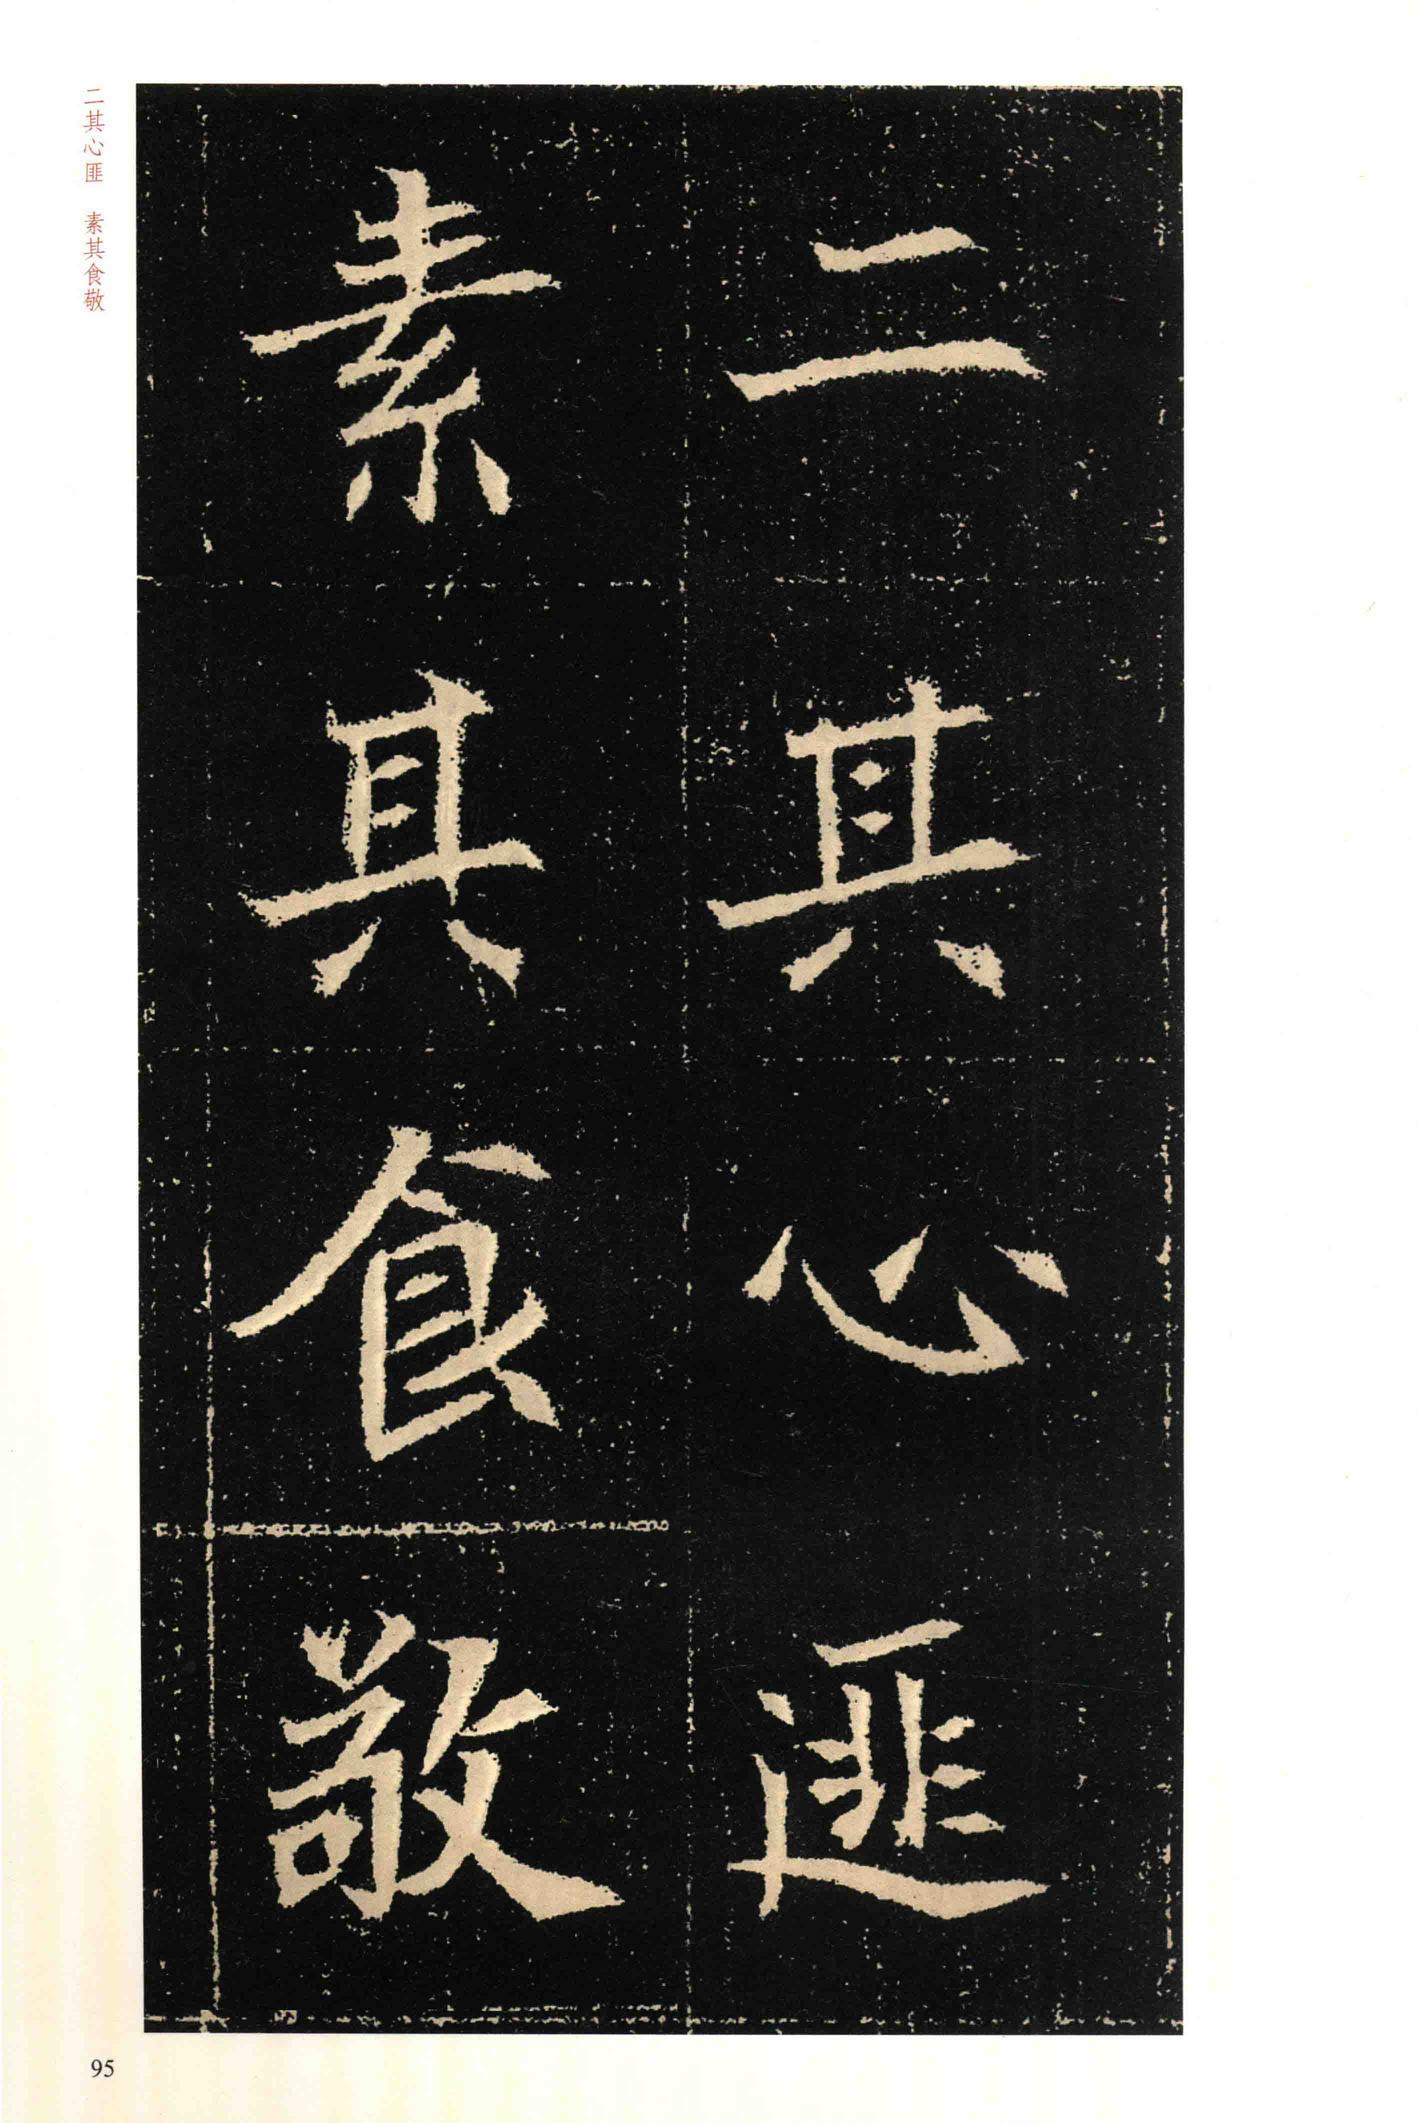 二其心匪
素其食敬
二其心匪 素其食敬
95